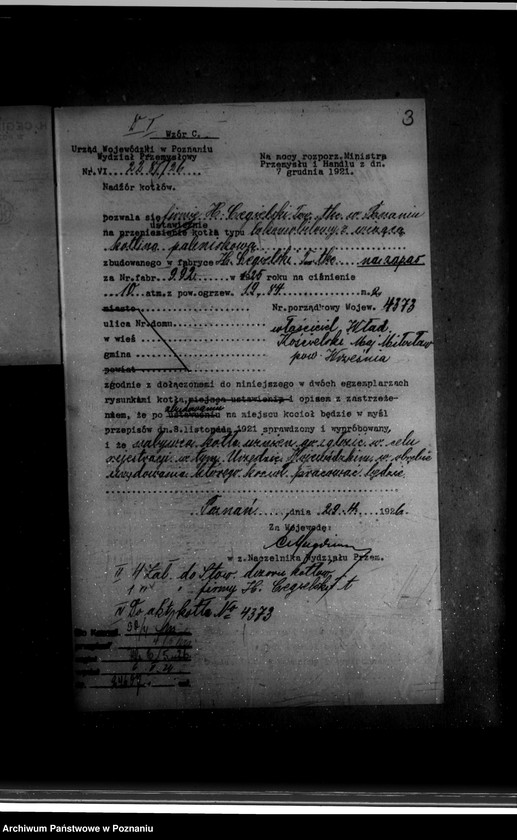 3
I
Wzór C.
Urząd Wojewódzki w Poznaniu
Wydział Przemysłowy
Nr.VI
Nadzór kotłów.
Na mocy rozporz. Ministra
Przemysłu i Handlu z dn.
7 grudnia 1921.
pozwala się firmy H. Cegielski Tow. Akc. w Poznaniu
ustawienie
na przeniesienie kotła typu lokomobilowy z
paleniskową
zbudowanego w fabryce H. Cegielski T. Akc. na zapas
za Nr.fabr. 292 w 1925 roku na ciśnienie
10 atm.z pow.ogrzew. 19,84 m.
miasto
Nr.porządkowy Wojew. 4373
ulica Nr.domu
właściciel Wład.
w wsi
Kościelski Maj. Miłosław
gmina
pow. Września
powiat
zgodnie z dołączonemi do niniejszego w dwóch egzemplarzach
rysunkami kotła, miejsca ustawienia i opisem z zastrzeże-
niem, że po zbudowaniu ustawieniu na miejscu kocioł będzie w myśl
przepisów dn.8.listopada 1921 sprawdzony i wypróbowany,
i że nabywca kotła winien go zgłosić w celu
rejestracji w tym Urzędzie Wojewódzkim w obrębie
którego kocioł pracować będzie
Poznań, dnia 1926
Za Wojewodę:
w z.Naczelnika Wydziału Przem.
II Zał. do Stow. dozoru kotłów
firmy H. Cegielski
IV Do akt kotła No 4373
Archiwum Państwowe w Poznaniu